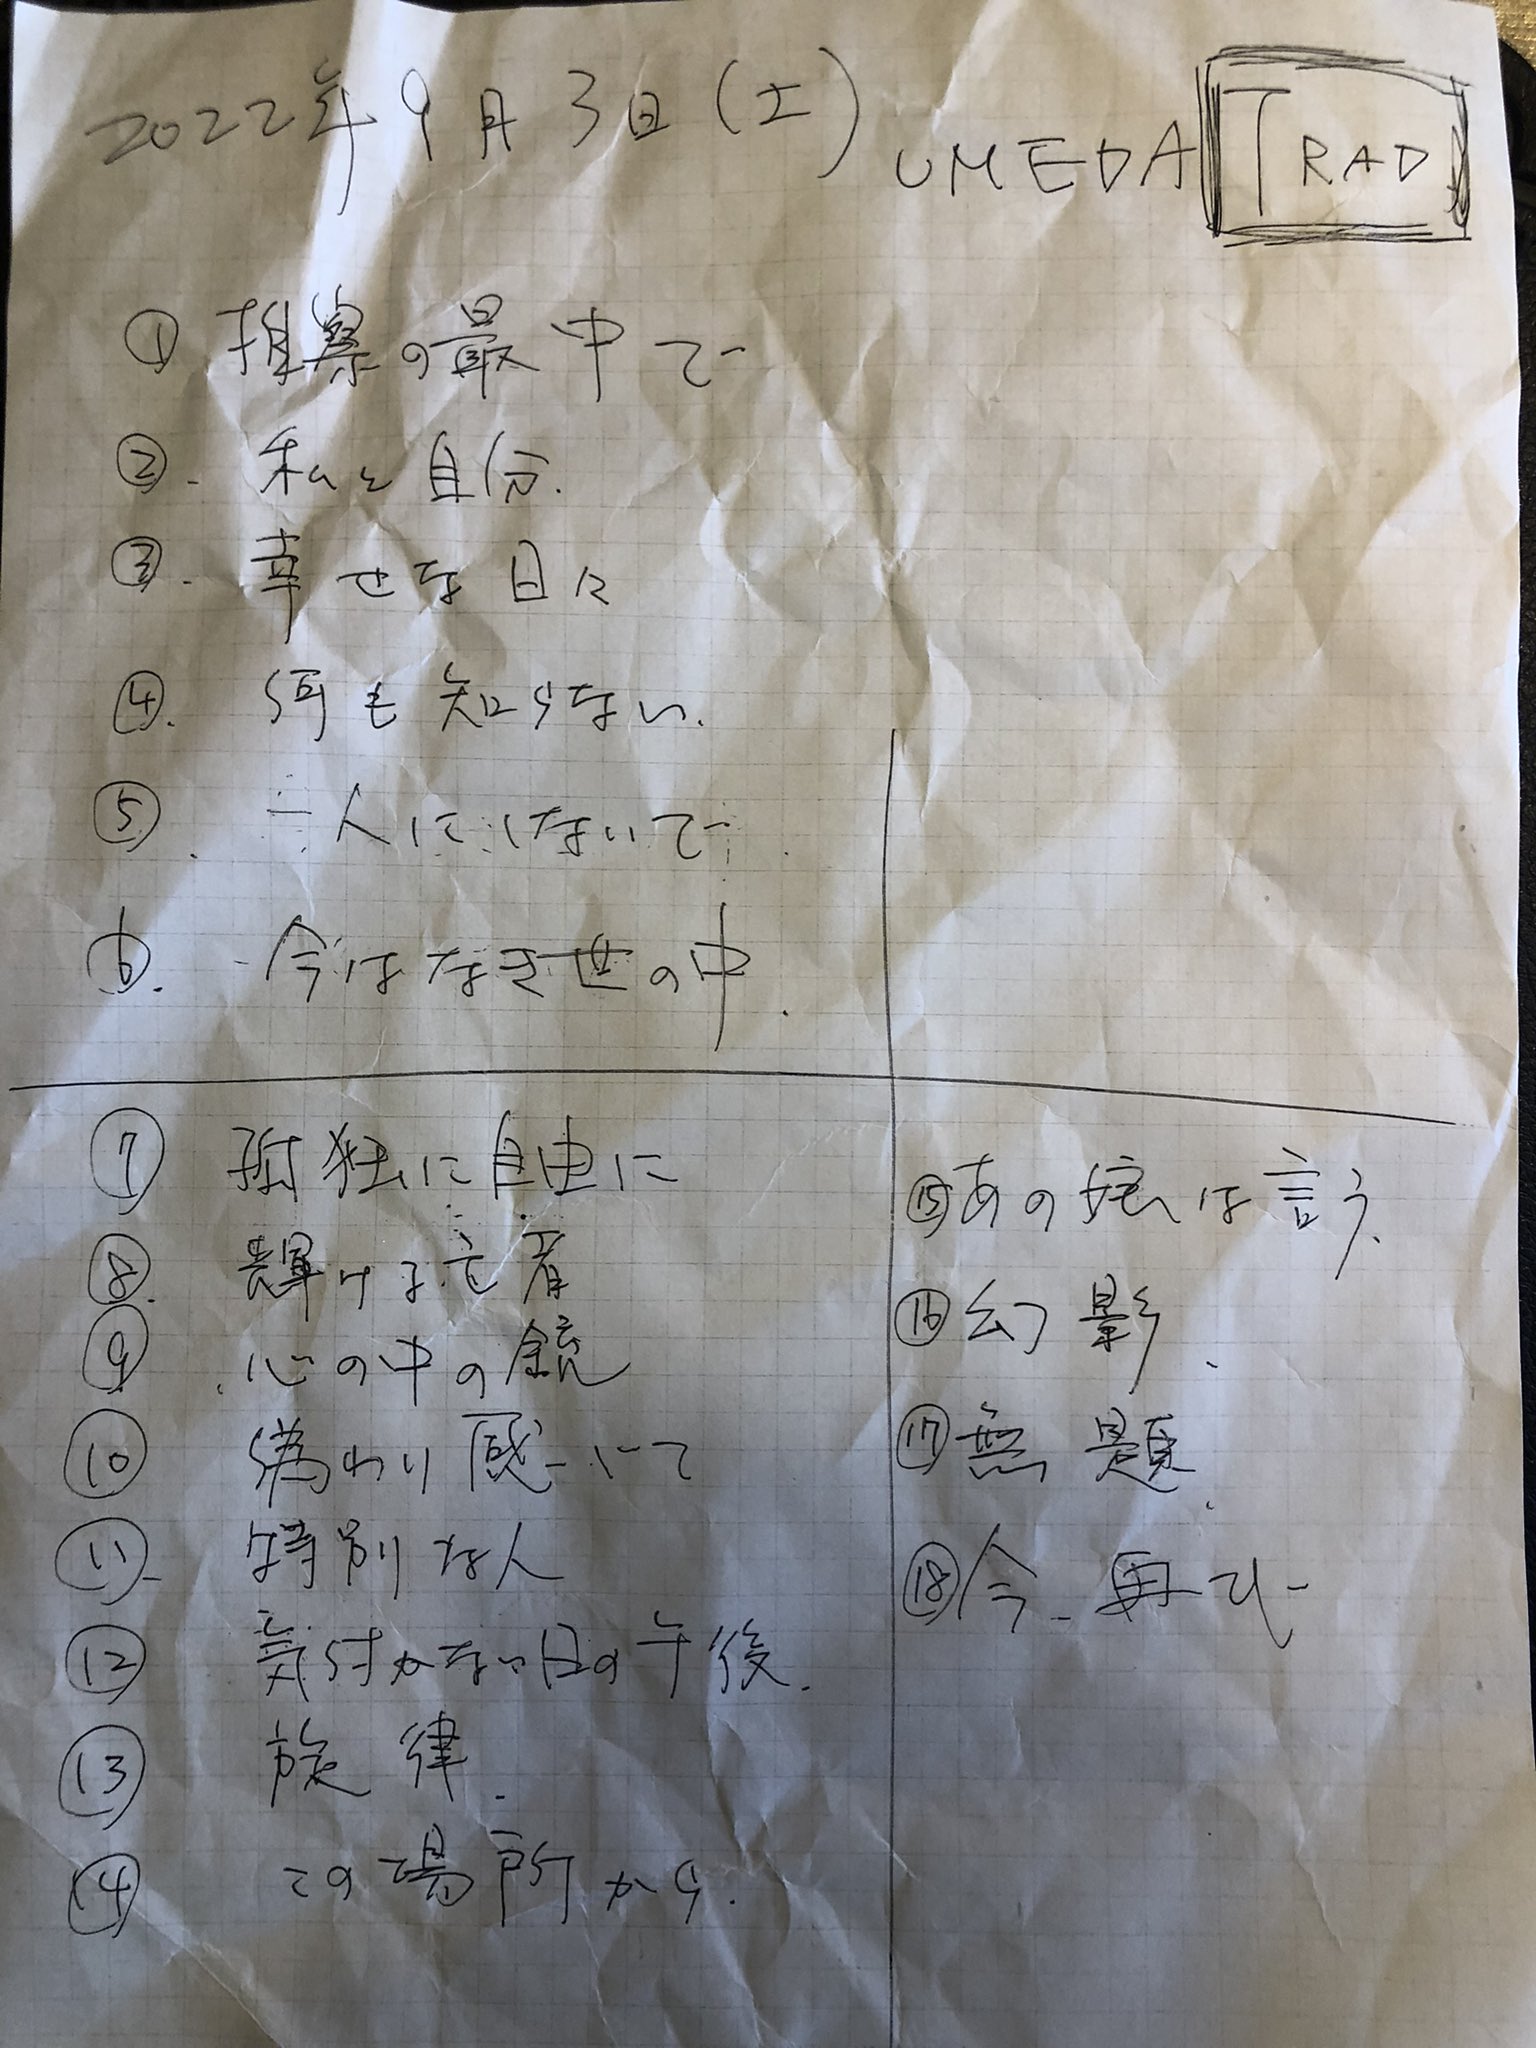 2022年9月3日(土) UMEDA TRAD
① 推察の最中で
②. 私と自分.
③. 幸せな日に
④. 何も知らない.
⑤. 一人にしないで
⑥. 今はなき世の中.
⑦ 孤独に自由に
⑧. 輝ける亡者
⑨ 心の中の鏡
⑩ 偽わり感じて
⑪. 特別な人
⑫ 気付かない日の午後.
⑬ 旋律.
⑭ この場所から.
⑮ あの娘は言う.
⑯ 幻影.
⑰ 無題.
⑱ 今、再び